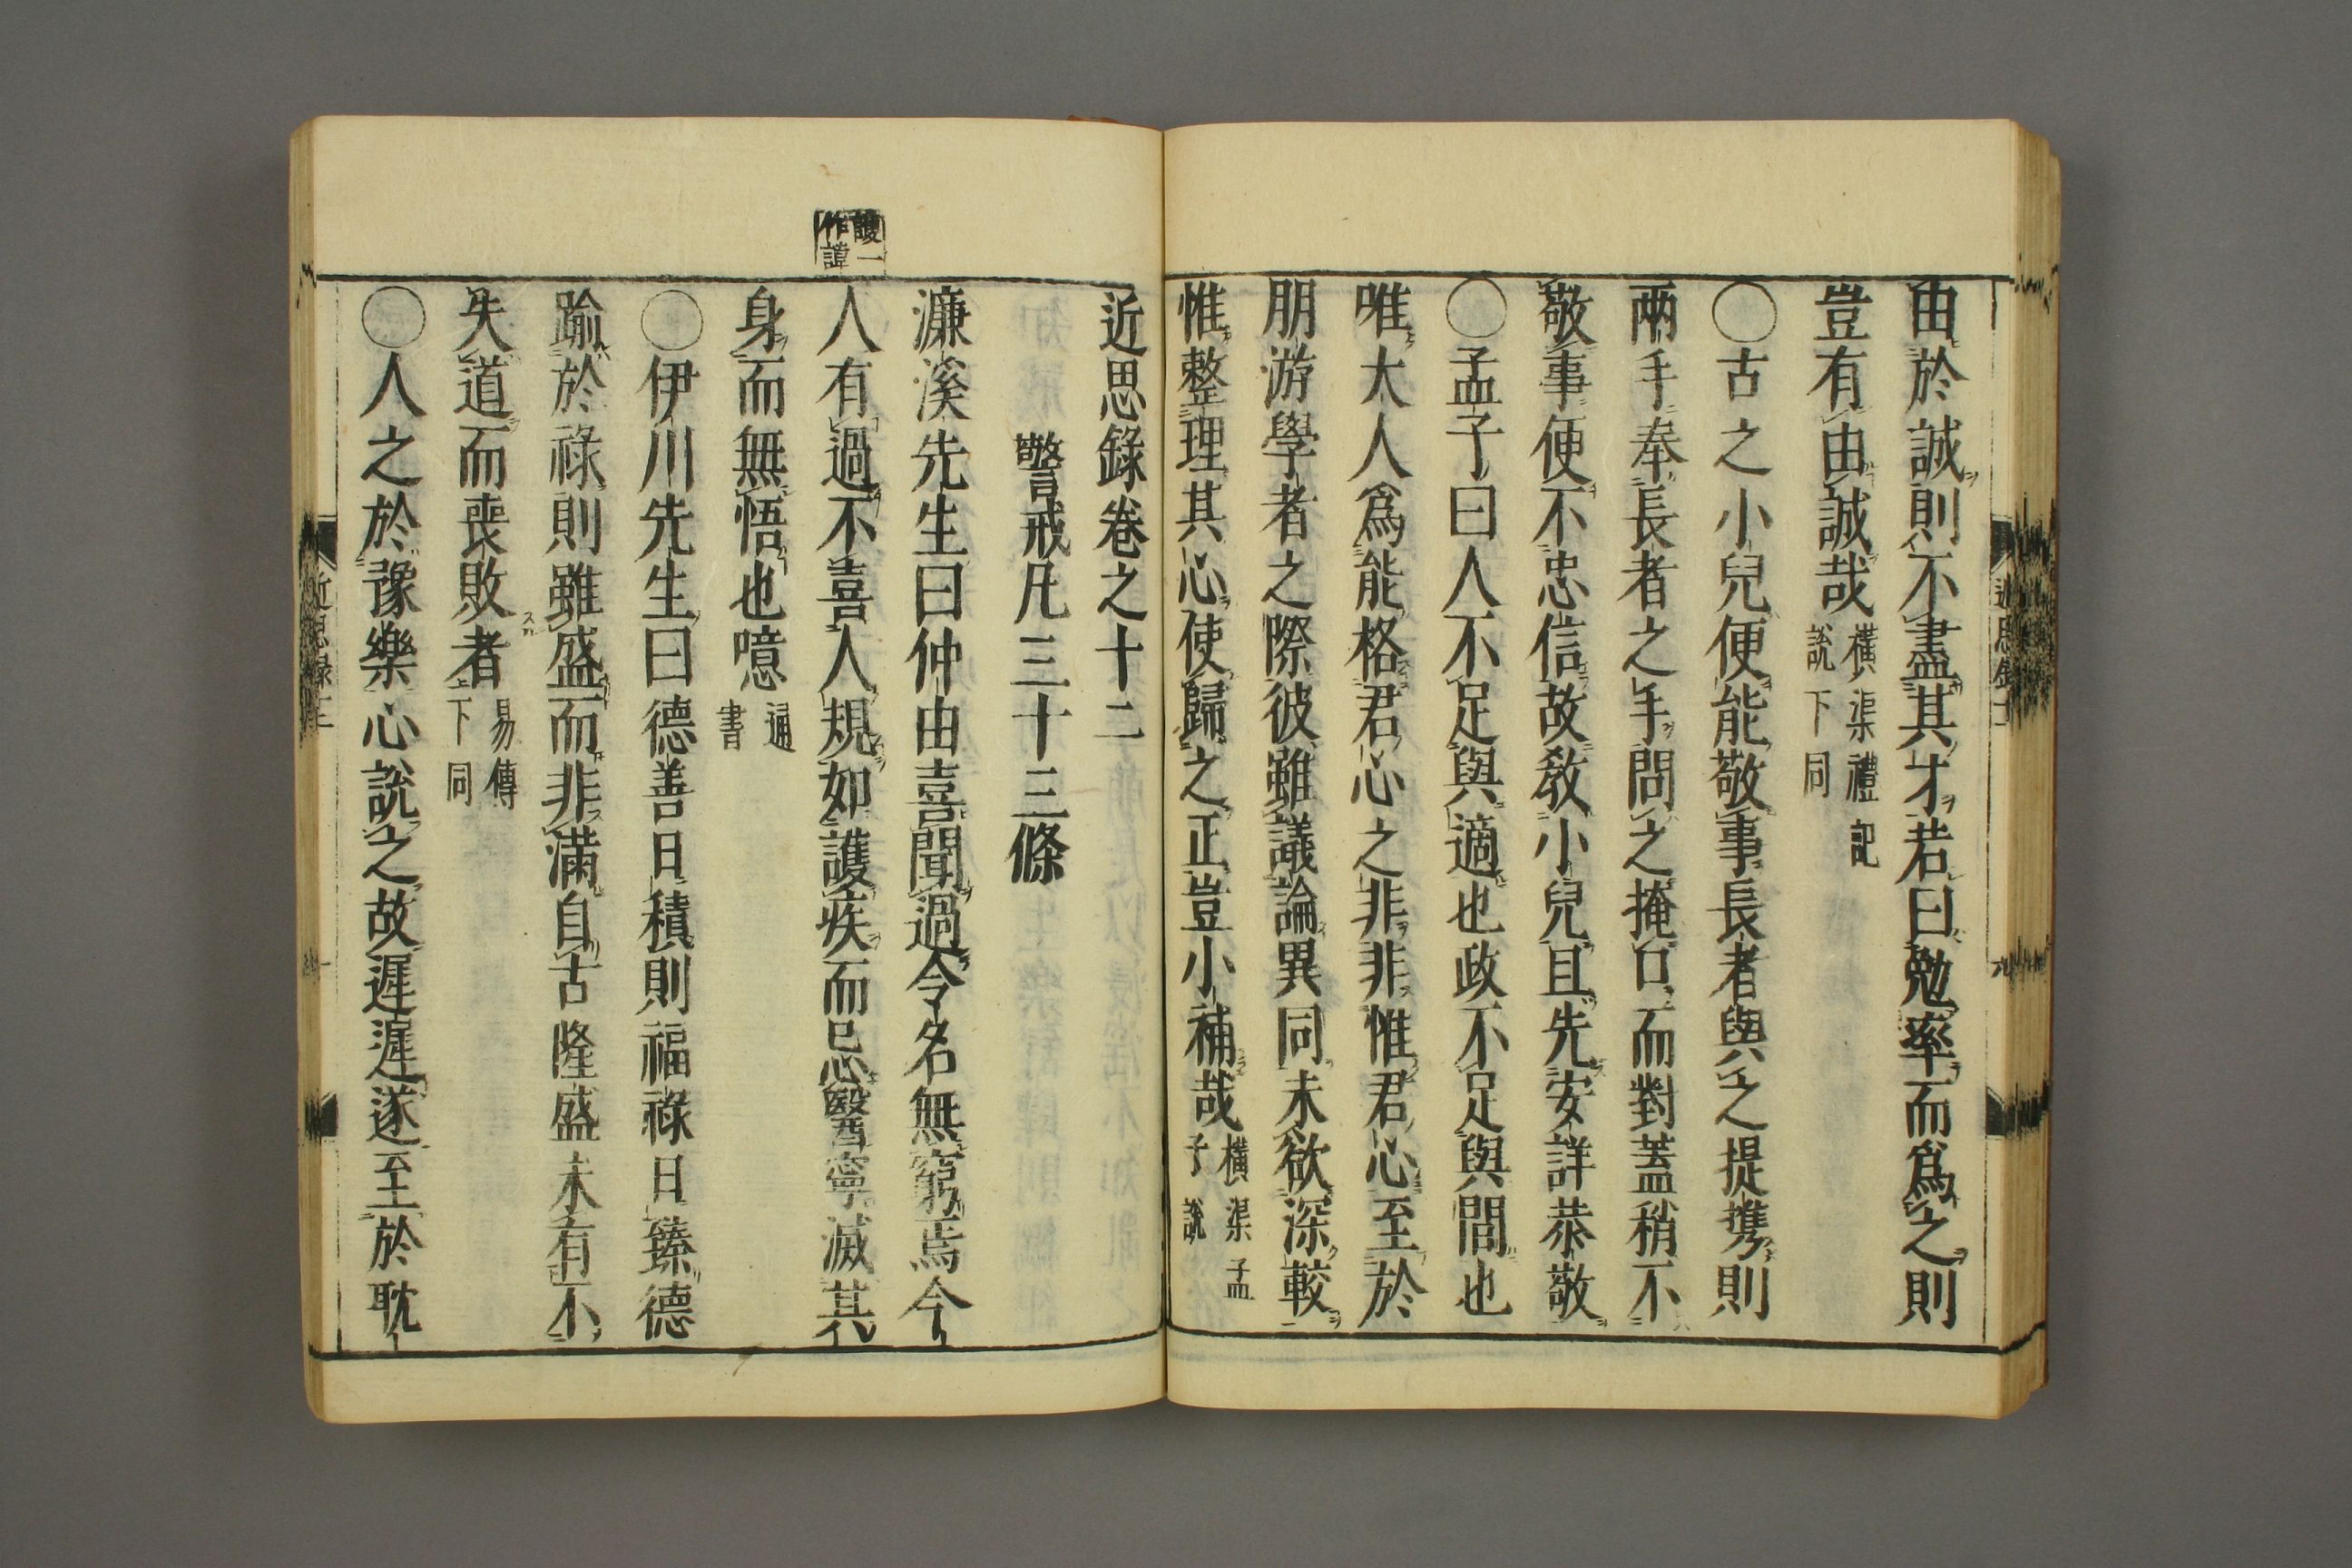 由於誠則不盡其才若曰勉率而爲之則
豈有由誠哉
橫渠禮記
說下同
〇古之小兒便能敬事長者與之提携則
兩手奉長者之手問之掩口而對蓋稍不
敬事便不忠信故敎小兒且先安詳恭敬
〇孟子曰人不足與適也政不足與間也
唯大人爲能格君心之非非惟君心至於
朋游學者之際彼雖議論異同未欲深較
惟整理其心使歸之正豈小補哉
橫渠孟
子說
近思錄卷之十二
警戒凡三十三條
濂溪先生曰仲由喜聞過令名無窮焉今
護一
作諱
人有過不喜人規如護疾而忌醫寧滅其
身而無悟也噫
通
書
〇伊川先生曰德善日積則福祿日臻德
踰於祿則雖盛而非滿自古隆盛未有不
失道而喪敗者
易傳
下同
〇人之於豫樂心說之故遲遲遂至於耽